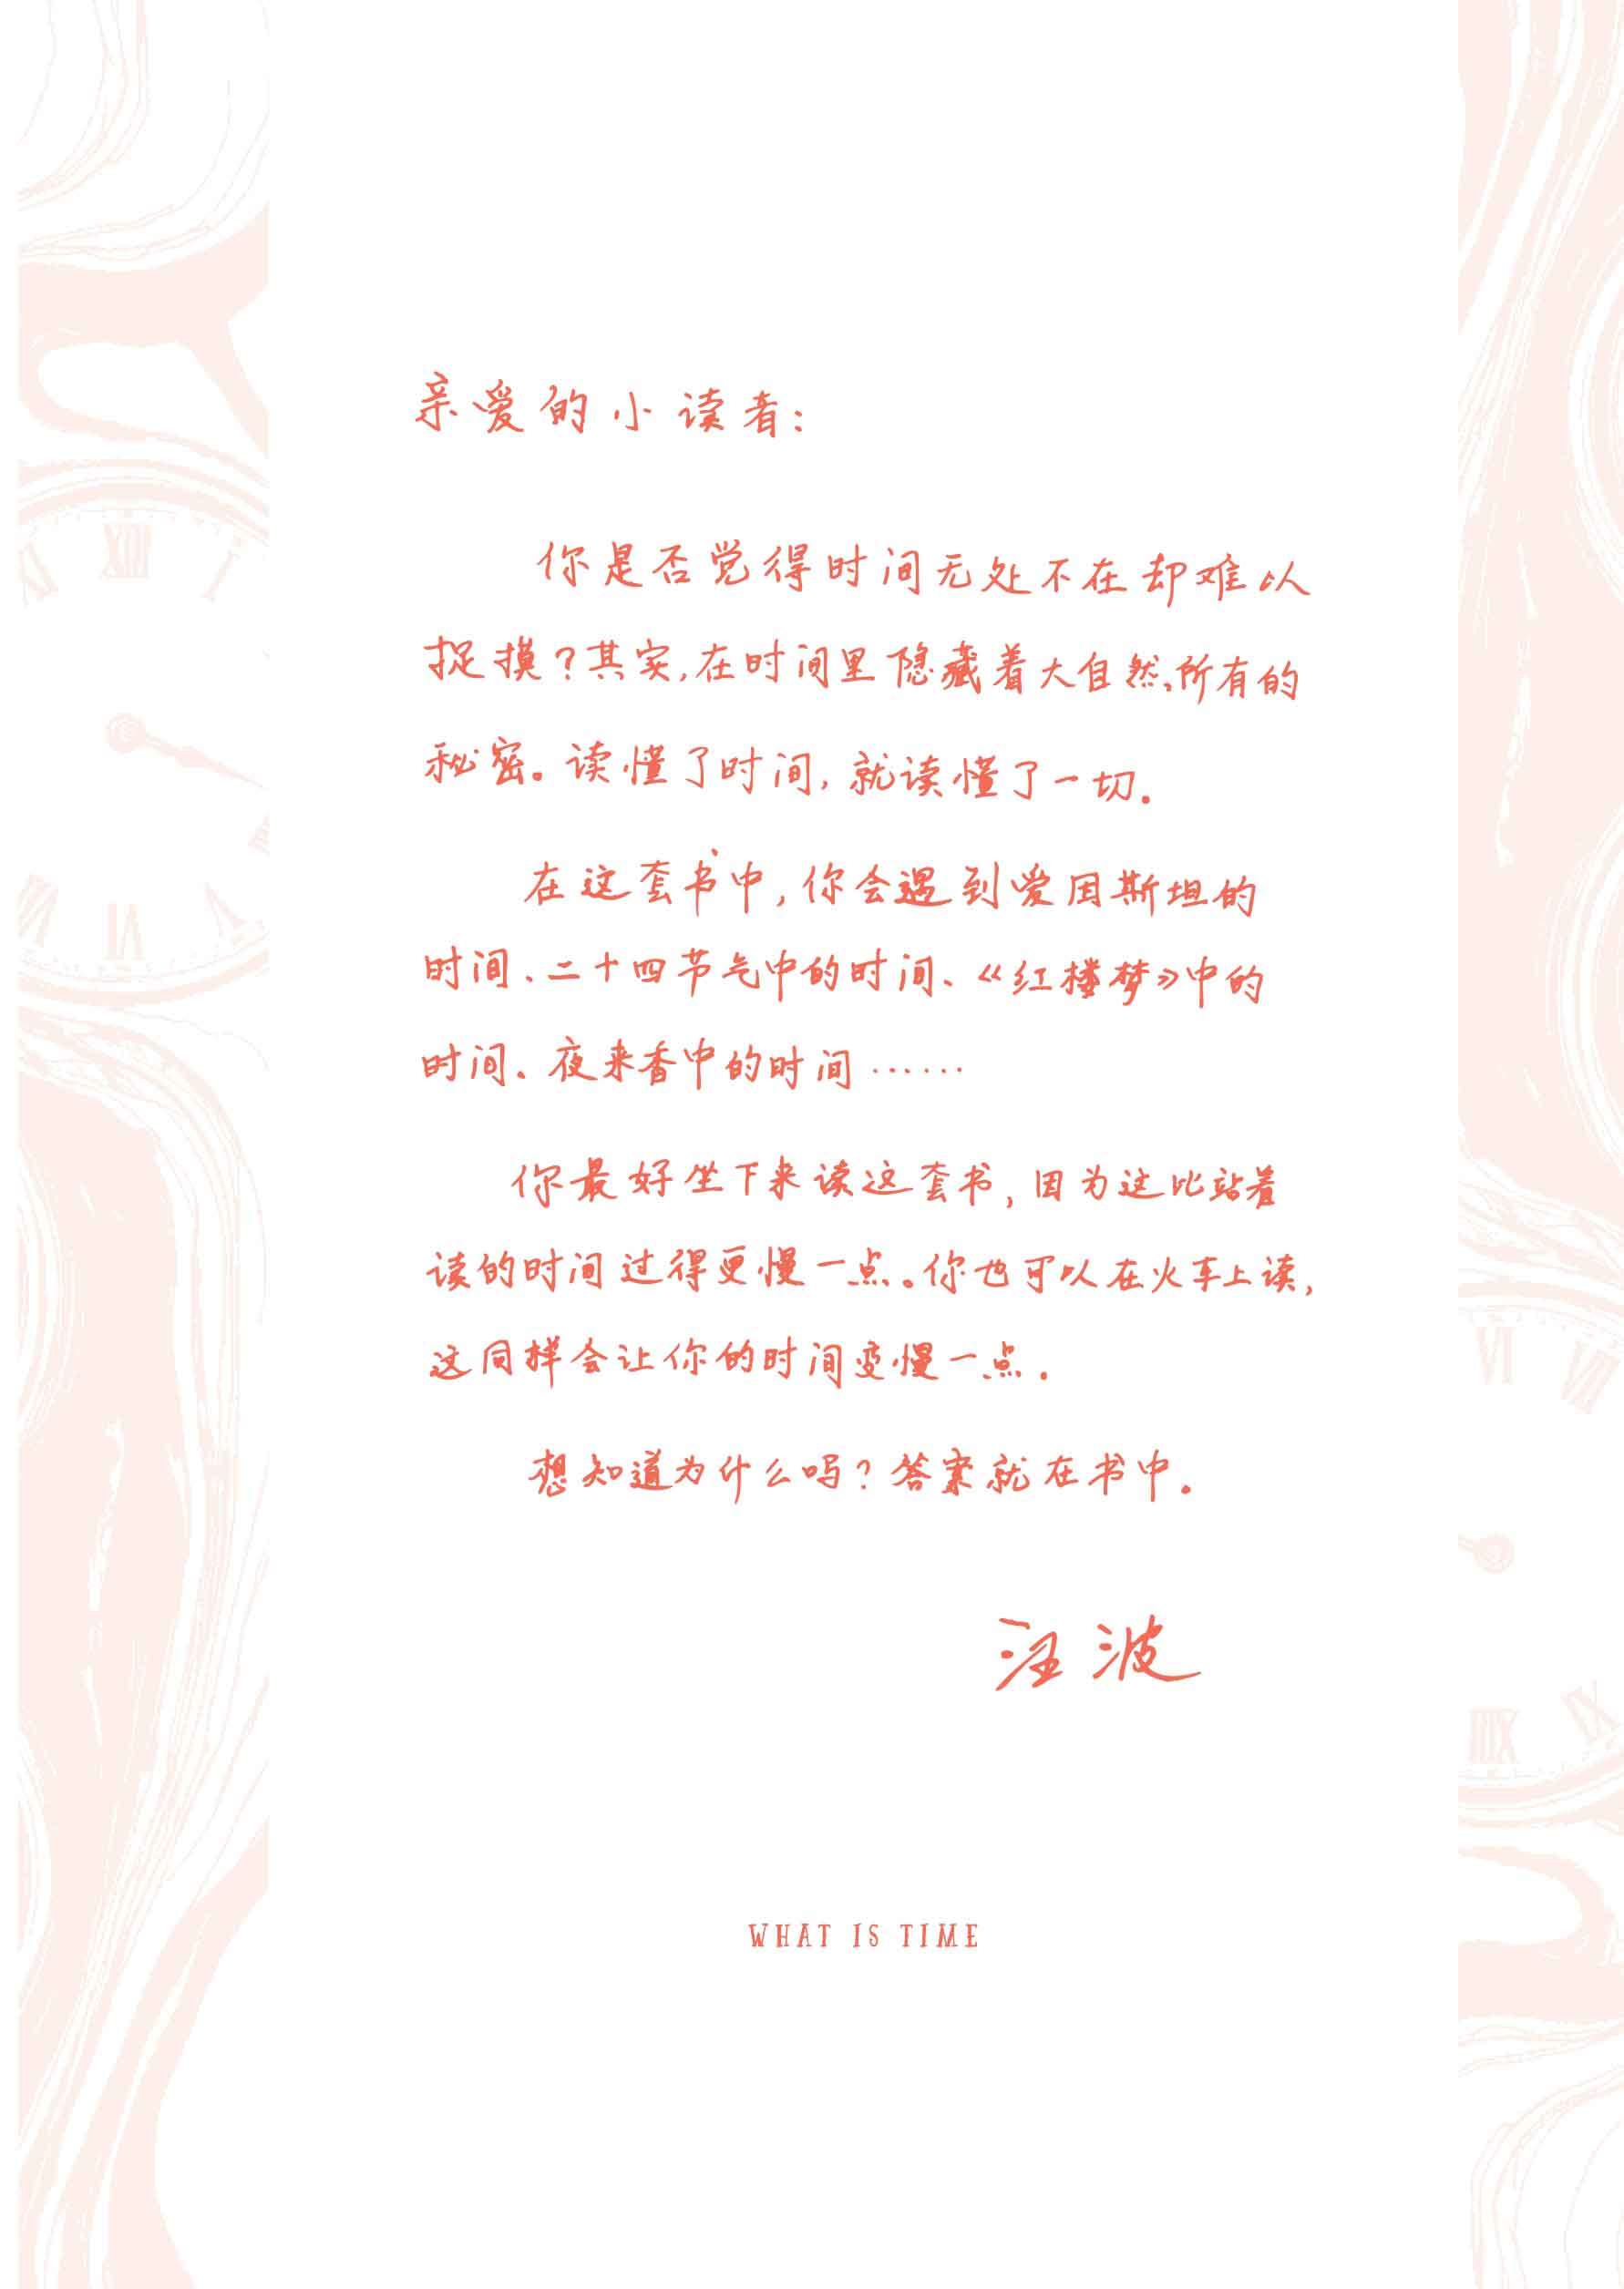 亲爱的小读者：
你是否觉得时间无处不在却难以
捉摸？其实，在时间里隐藏着大自然所有的
秘密。读懂了时间，就读懂了一切。
在这套书中，你会遇到爱因斯坦的
时间、二十四节气中的时间、《红楼梦》中的
时间、夜来香中的时间……
你最好坐下来读这套书，因为这比站着
读的时间过得更慢一点。你也可以在火车上读，
这同样会让你的时间变慢一点。
想知道为什么吗？答案就在书中。
汪波
WHAT IS TIME